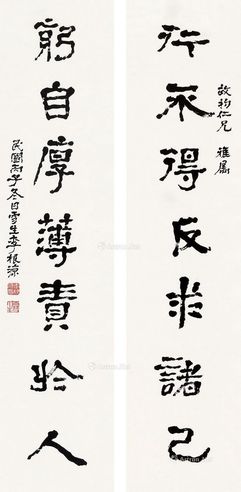 行不得反求諸己
啟枃仁兄 雅屬
躬自厚薄責於人
民國丙子冬日雪生李根源